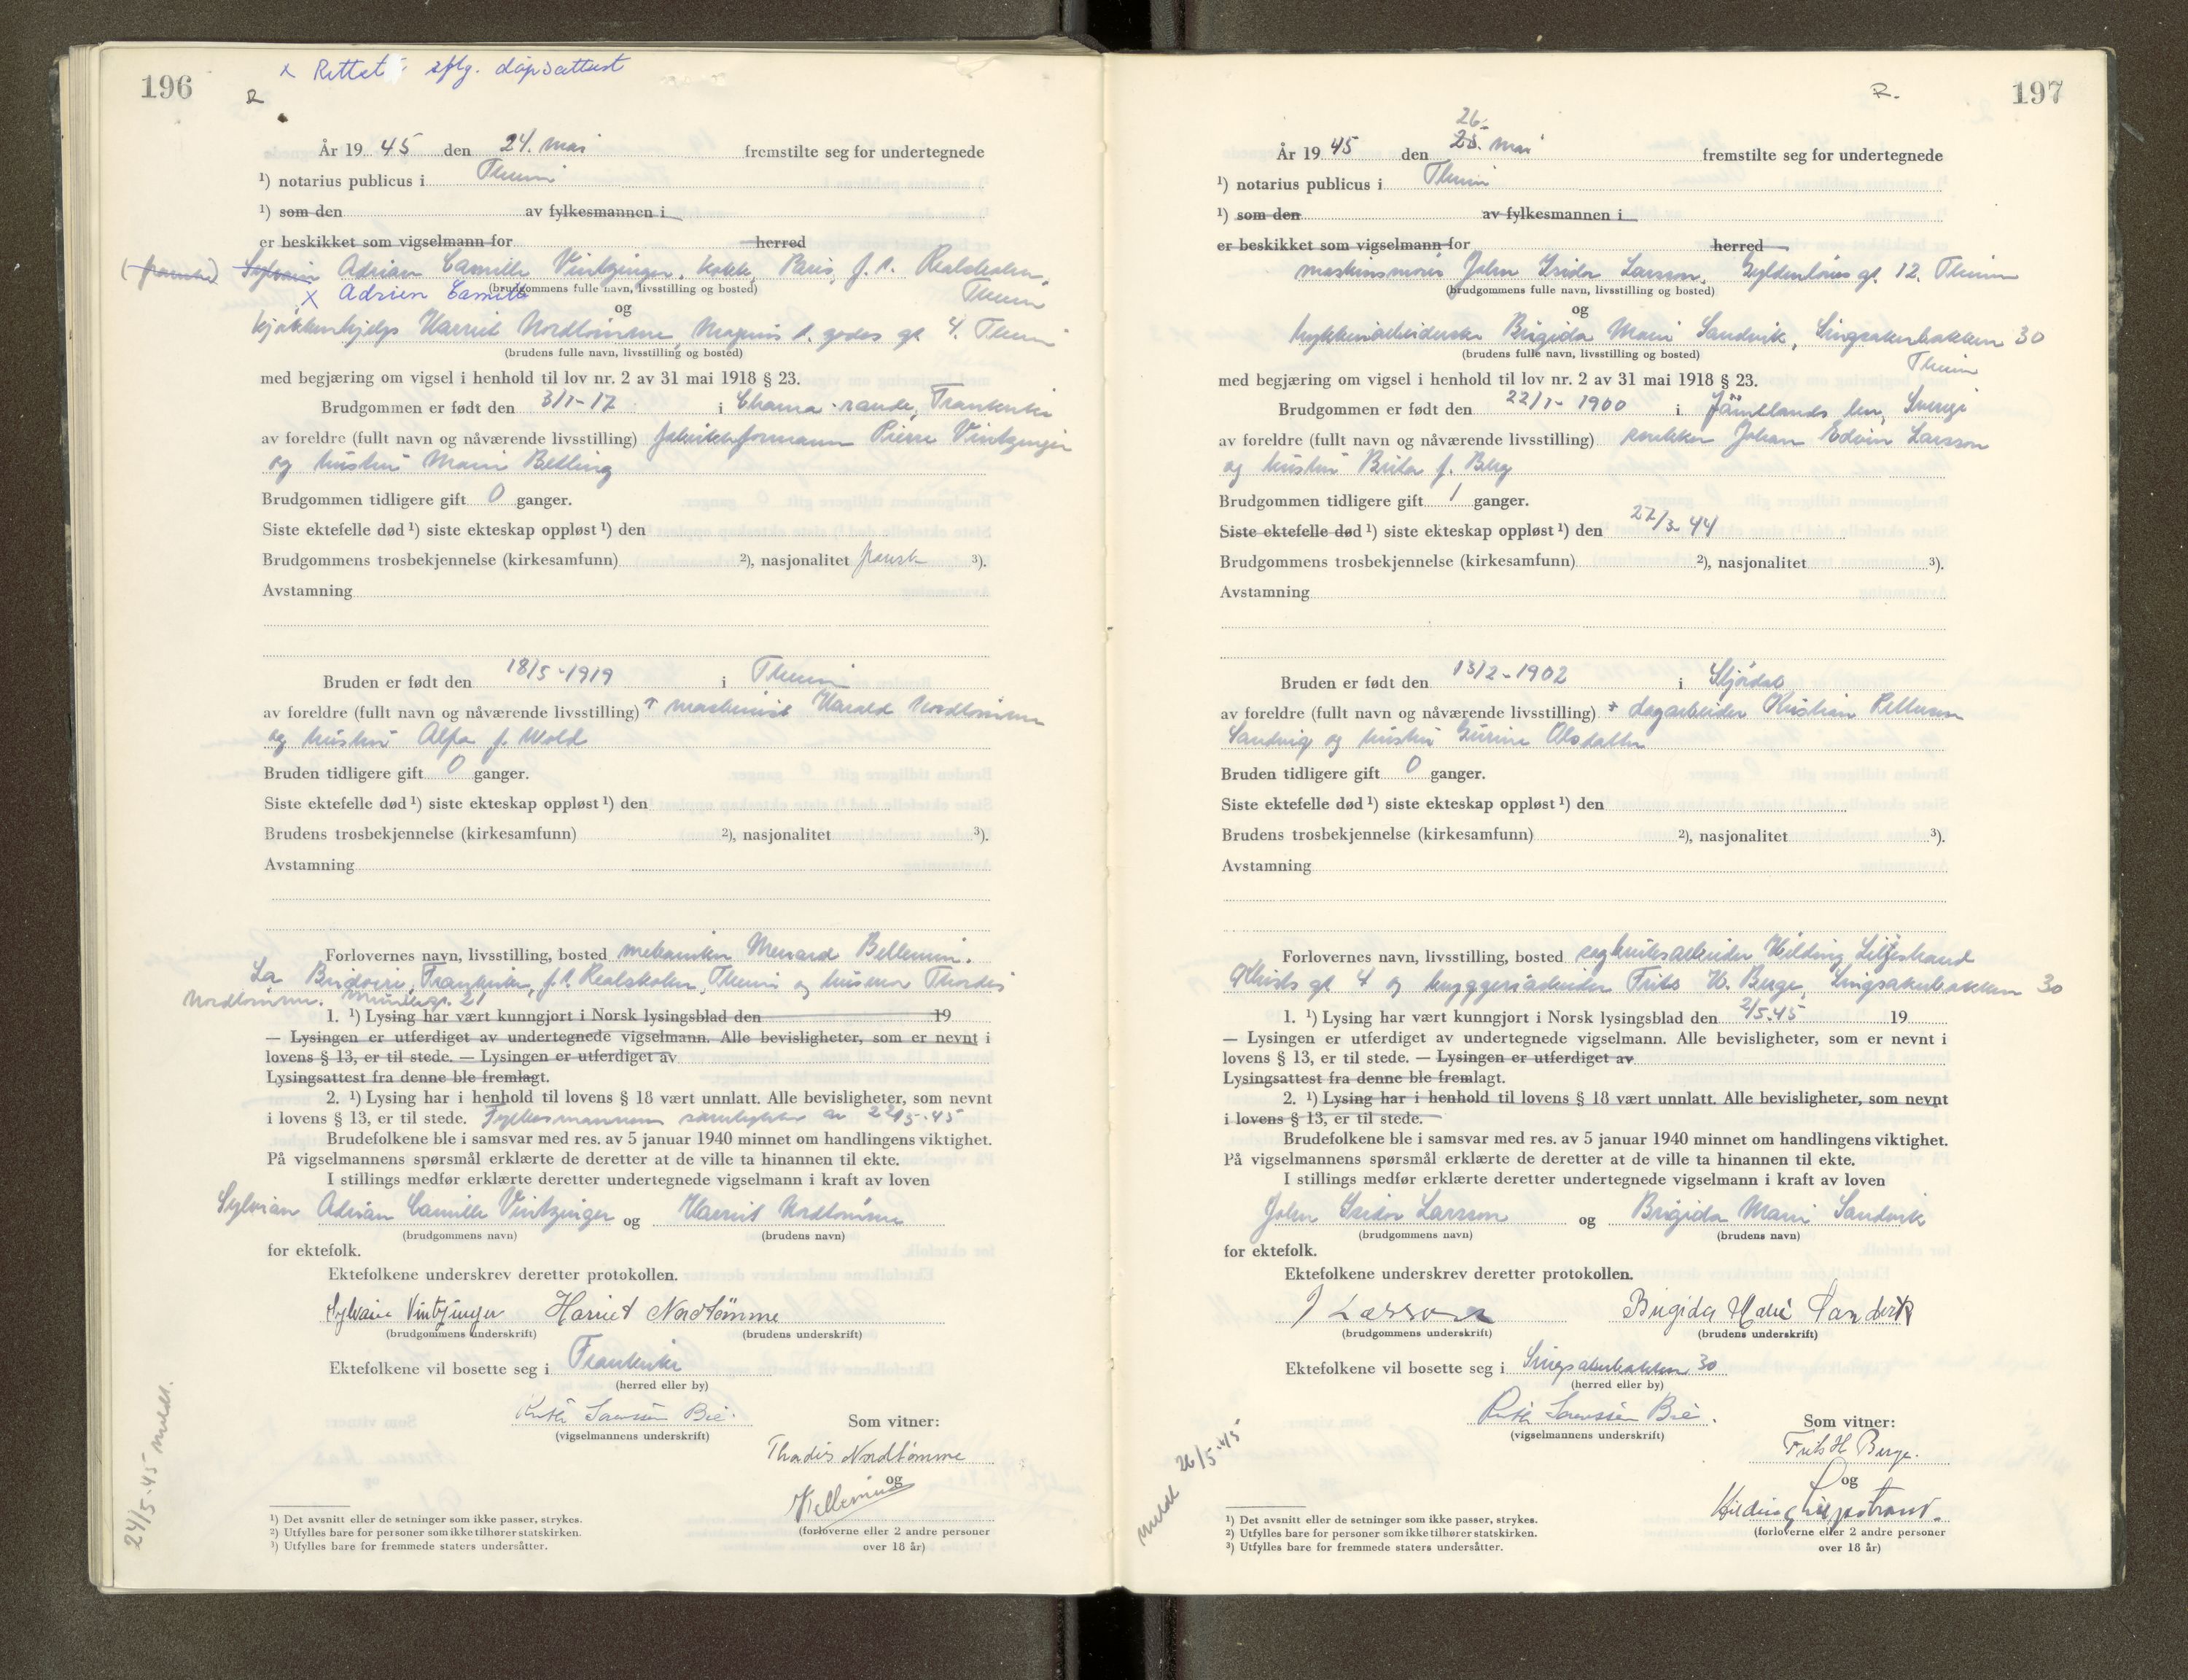 196
x Rettet iflg. dåpsattest
R
År 1945 den 24. mai fremstilte seg for undertegnede
¹) notarius publicus i Thm
¹) som den av fylkesmannen i
er beskikket som vigselmann for herred
Sylvain Adrian Camille Vintzinger, kokk, Paris, f.t. Realskolen,
Thm
x Adrien Camille
(brudgommens fulle navn, livsstilling og bosted)
og
kjøkkenhjelp Harriet Nordtømme, Magnus d. godes gt 4. Thm
(brudens fulle navn, livsstilling og bosted)
med begjæring om vigsel i henhold til lov nr. 2 av 31 mai 1918 § 23.
Brudgommen er født den 3/1-17 i Frankrike
av foreldre (fullt navn og nåværende livsstilling) fabrikkformann Pierre Vintzinger
og hustru Marie Betling
Brudgommen tidligere gift 0 ganger.
Siste ektefelle død ¹) siste ekteskap oppløst ¹) den
Brudgommens trosbekjennelse (kirkesamfunn) ²), nasjonalitet fransk ³).
Avstamning
Bruden er født den 18/5-1919 i Thm
av foreldre (fullt navn og nåværende livsstilling) maskinist Harald Nordtømme
og hustru Alfa f. Wold
Bruden tidligere gift 0 ganger.
Siste ektefelle død ¹) siste ekteskap oppløst ¹) den
Brudens trosbekjennelse (kirkesamfunn) ²), nasjonalitet ³).
Avstamning
Forlovernes navn, livsstilling, bosted mekaniker Bellemin.
La Frankrike, f.t. Realskolen, Thm og husmor Thordis
Nordtømme. 21
1. ¹) Lysing har vært kunngjort i Norsk lysingsblad den 19
— Lysingen er utferdiget av undertegnede vigselmann. Alle bevisligheter, som er nevnt i
lovens § 13, er til stede. — Lysingen er utferdiget av
Lysingsattest fra denne ble fremlagt.
2. ¹) Lysing har i henhold til lovens § 18 vært unnlatt. Alle bevisligheter, som nevnt
i lovens § 13, er til stede. Fylkesmannens samtykke av 22/5-45
Brudefolkene ble i samsvar med res. av 5 januar 1940 minnet om handlingens viktighet.
På vigselmannens spørsmål erklærte de deretter at de ville ta hinannen til ekte.
I stillings medfør erklærte deretter undertegnede vigselmann i kraft av loven
Sylvian Adrian Camille Vintzinger og Harriet Nordtømme
(brudgommens navn) (brudens navn)
for ektefolk.
Ektefolkene underskrev deretter protokollen.
Sylvain Vintzinger Harriet Nordtømme
(brudgommens underskrift) (brudens underskrift)
Ektefolkene vil bosette seg i Frankrike
(herred eller by)
Ruth Sørenssen Bie.
(vigselmannens underskrift)
Som vitner:
Thordis Nordtømme
og
Bellemin
(forloverne eller 2 andre personer
over 18 år)
24/5-45 meldt.
¹) Det avsnitt eller de setninger som ikke passer, strykes.
²) Utfylles bare for personer som ikke tilhører statskirken.
³) Utfylles bare for fremmede staters undersåtter.
197
R.
26.
År 1945 den 25. mai fremstilte seg for undertegnede
¹) notarius publicus i Thm
¹) som den av fylkesmannen i
er beskikket som vigselmann for herred
maskinmurer John Isidor Larsson, Gyldenløves gt. 12. Thm
(brudgommens fulle navn, livsstilling og bosted)
og
trykkeriarbeiderske Brigida Marie Sandvik, Singsakerbakken 30
Thm
(brudens fulle navn, livsstilling og bosted)
med begjæring om vigsel i henhold til lov nr. 2 av 31 mai 1918 § 23.
Brudgommen er født den 22/1-1900 i Jämtlands len, Sverige
av foreldre (fullt navn og nåværende livsstilling) snekker Johan Edvin Larsson
og hustru Brita f. Berg
Brudgommen tidligere gift 1 ganger.
Siste ektefelle død ¹) siste ekteskap oppløst ¹) den 27/3-44
Brudgommens trosbekjennelse (kirkesamfunn) ²), nasjonalitet ³).
Avstamning
Bruden er født den 13/2-1902 i Stjørdal
av foreldre (fullt navn og nåværende livsstilling) + dagarbeider Kristian Pettersen
Sandvig og hustru Gurine Olsdatter
Bruden tidligere gift 0 ganger.
Siste ektefelle død ¹) siste ekteskap oppløst ¹) den
Brudens trosbekjennelse (kirkesamfunn) ²), nasjonalitet ³).
Avstamning
Forlovernes navn, livsstilling, bosted sagbruksarbeider Hilding Liljestrand
gt 4 og bryggeriarbeider Frits H. Berge, Singsakerbakken 30
1. ¹) Lysing har vært kunngjort i Norsk lysingsblad den 2/5-45 19
— Lysingen er utferdiget av undertegnede vigselmann. Alle bevisligheter, som er nevnt i
lovens § 13, er til stede. — Lysingen er utferdiget av
Lysingsattest fra denne ble fremlagt.
2. ¹) Lysing har i henhold til lovens § 18 vært unnlatt. Alle bevisligheter, som nevnt
i lovens § 13, er til stede.
Brudefolkene ble i samsvar med res. av 5 januar 1940 minnet om handlingens viktighet.
På vigselmannens spørsmål erklærte de deretter at de ville ta hinannen til ekte.
I stillings medfør erklærte deretter undertegnede vigselmann i kraft av loven
John Isidor Larsson og Brigida Marie Sandvik
(brudgommens navn) (brudens navn)
for ektefolk.
Ektefolkene underskrev deretter protokollen.
J Larsson Brigida Marie Sandvik
(brudgommens underskrift) (brudens underskrift)
Ektefolkene vil bosette seg i Singsakerbakken 30
(herred eller by)
Ruth Sørenssen Bie.
(vigselmannens underskrift)
Som vitner:
Frits H Berge.
og
Hilding Liljestrand.
(forloverne eller 2 andre personer
over 18 år)
meldt 26/5-45
¹) Det avsnitt eller de setninger som ikke passer, strykes.
²) Utfylles bare for personer som ikke tilhører statskirken.
³) Utfylles bare for fremmede staters undersåtter.